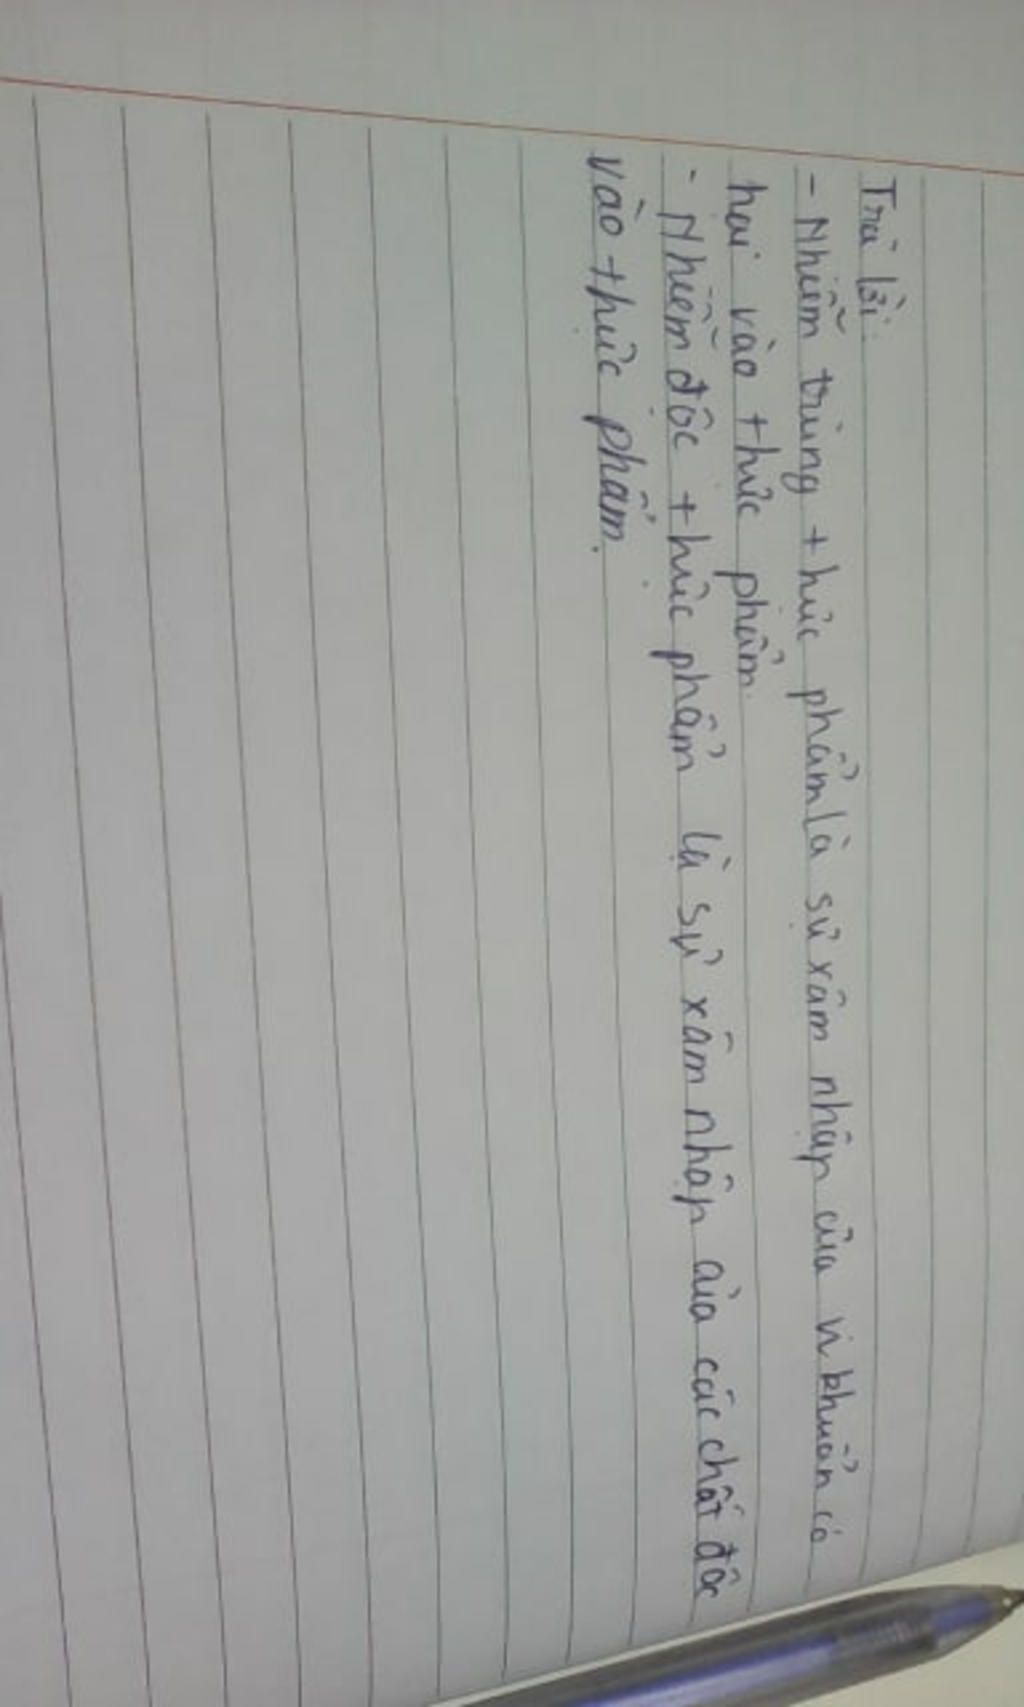 Trả lời:
- Nhiễm trùng thực phẩm là sự xâm nhập của vi khuẩn có
hại vào thực phẩm.
- Nhiễm độc thực phẩm là sự xâm nhập của các chất độc
vào thực phẩm.